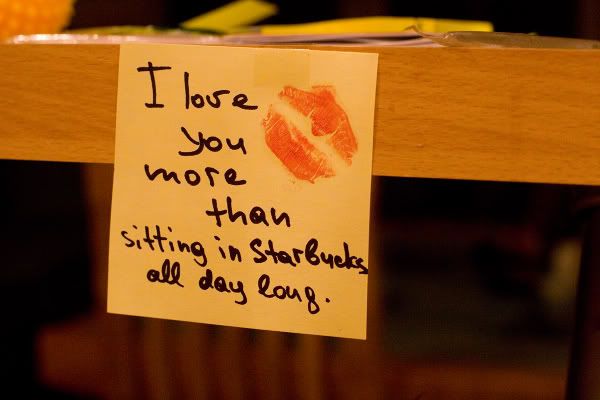 I love
you
more
than
sitting in StarBucks
all day long.